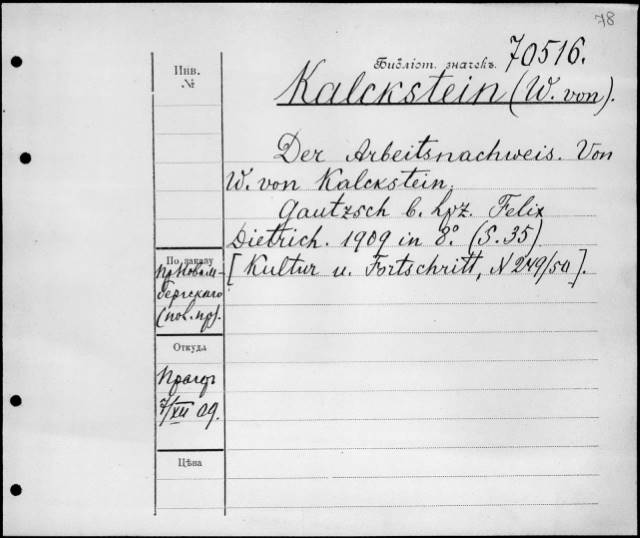 78
Библіот. значекъ. 70516.
Инв.
№
Kalckstein (W. von).
Der Arbeitsnachweis. Von
W. von Kalckstein.
Gautzsch b. Lpz. Felix
Dietrich. 1909 in 8°. (S. 35)
[Kultur u. Fortschritt, N 249/50].
По заказу
бергскаго
Откуда
7/XII 09.
Цѣна